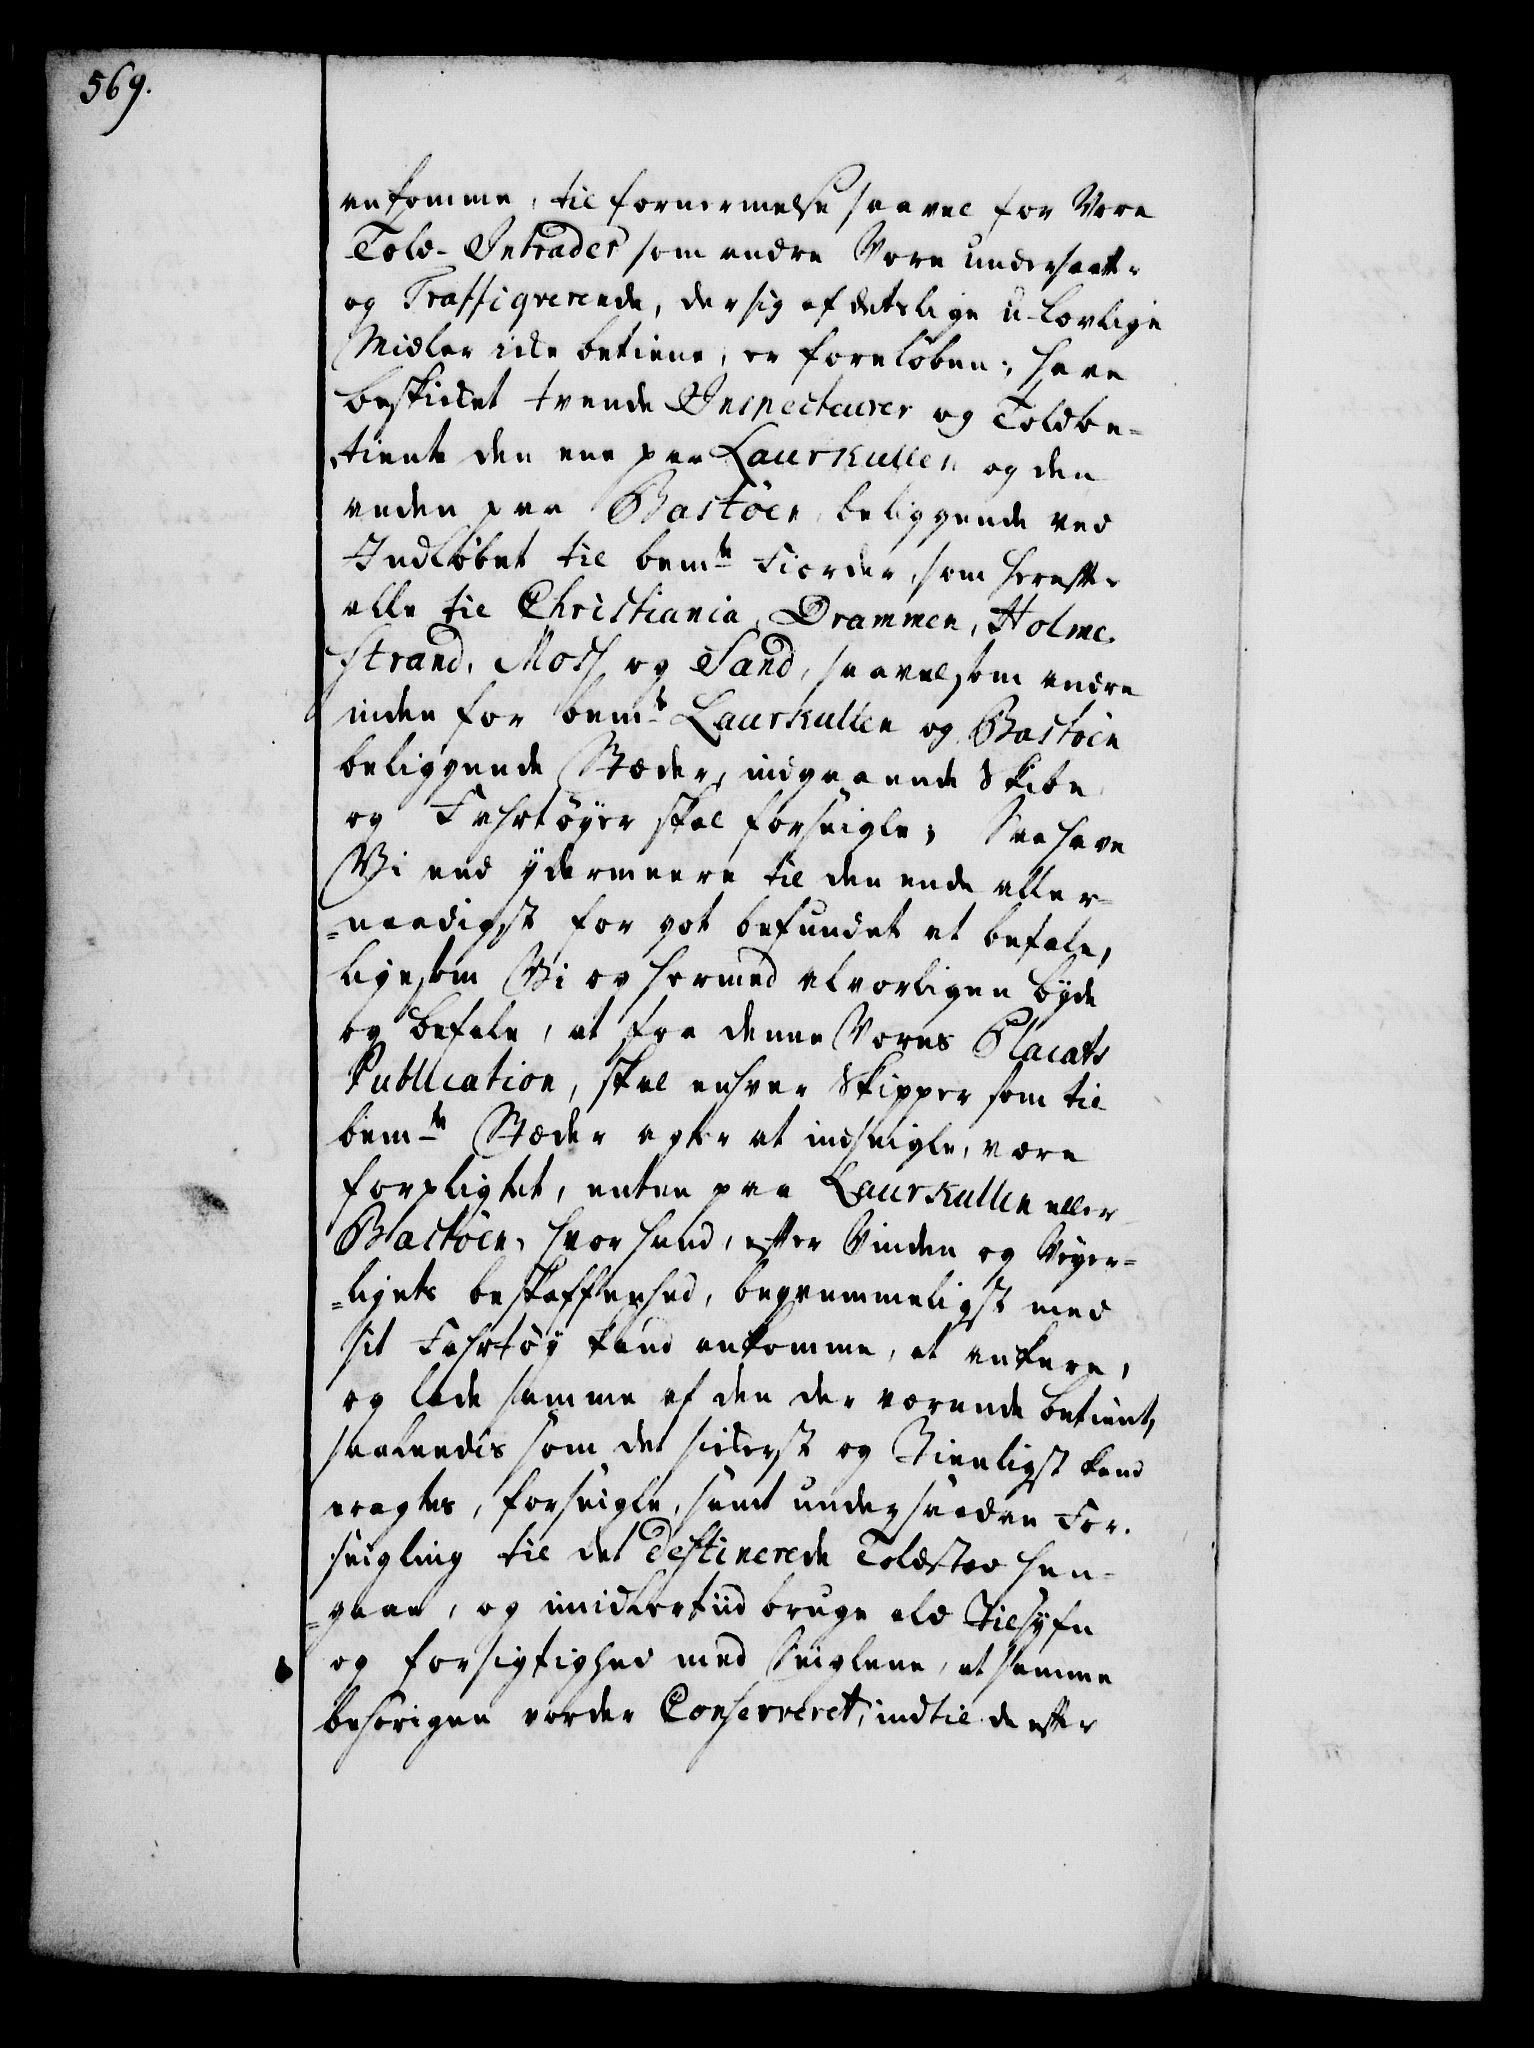 569.
ankomme, til fornermelse saavel for Vore
Told-Intrader som andre Vore undersaatter
og Traffiqverende, der sig af detslige u-lovlige
Midler icke betiene, er foreløben; have
beskicket tvende Inspecteurer og Toldbe-
tiente den ene paa Laurkullen og den
anden paa Bastöen, beliggende ved
Indløbet til bemte Fiorder, som herefter
alle til Christiania, Drammen, Holme-
strand, Moss og Sand, saavelsom andre
inden for bemte Laurkullen og Bastöen
beliggende Stæder, indgaaende Skibe
og Fahrtøyer skal forseigle; Saa have
Vi end ydermeere til den ende aller-
=naadigst for got befundet at befale,
ligesom Vi og hermed alvorligen byde
og befale, at fra denne Vores Placats
Publication, skal enhver Skipper som til
bemte Stæder agter at indseigle, være
forpligtet, enten paa Laurkullen eller
Bastöen, hvor hand, efter Vinden og Veyer-
=ligets beskaffenhed, beqvemmeligst med
sit Fahrtøy kand ankomme, at ankere,
og lade samme af den der værende betient,
saaledis som det sickerst og Tienligst kand
eragtes, forseigle, samt under saadan For-
seigling til det destinerede Toldsted hen-
=gaae, og imidlertiid bruge ald Tilsyn
og forsigtighed med Seiglene, at samme
behørigen vorder Conserveret, indtil de efter